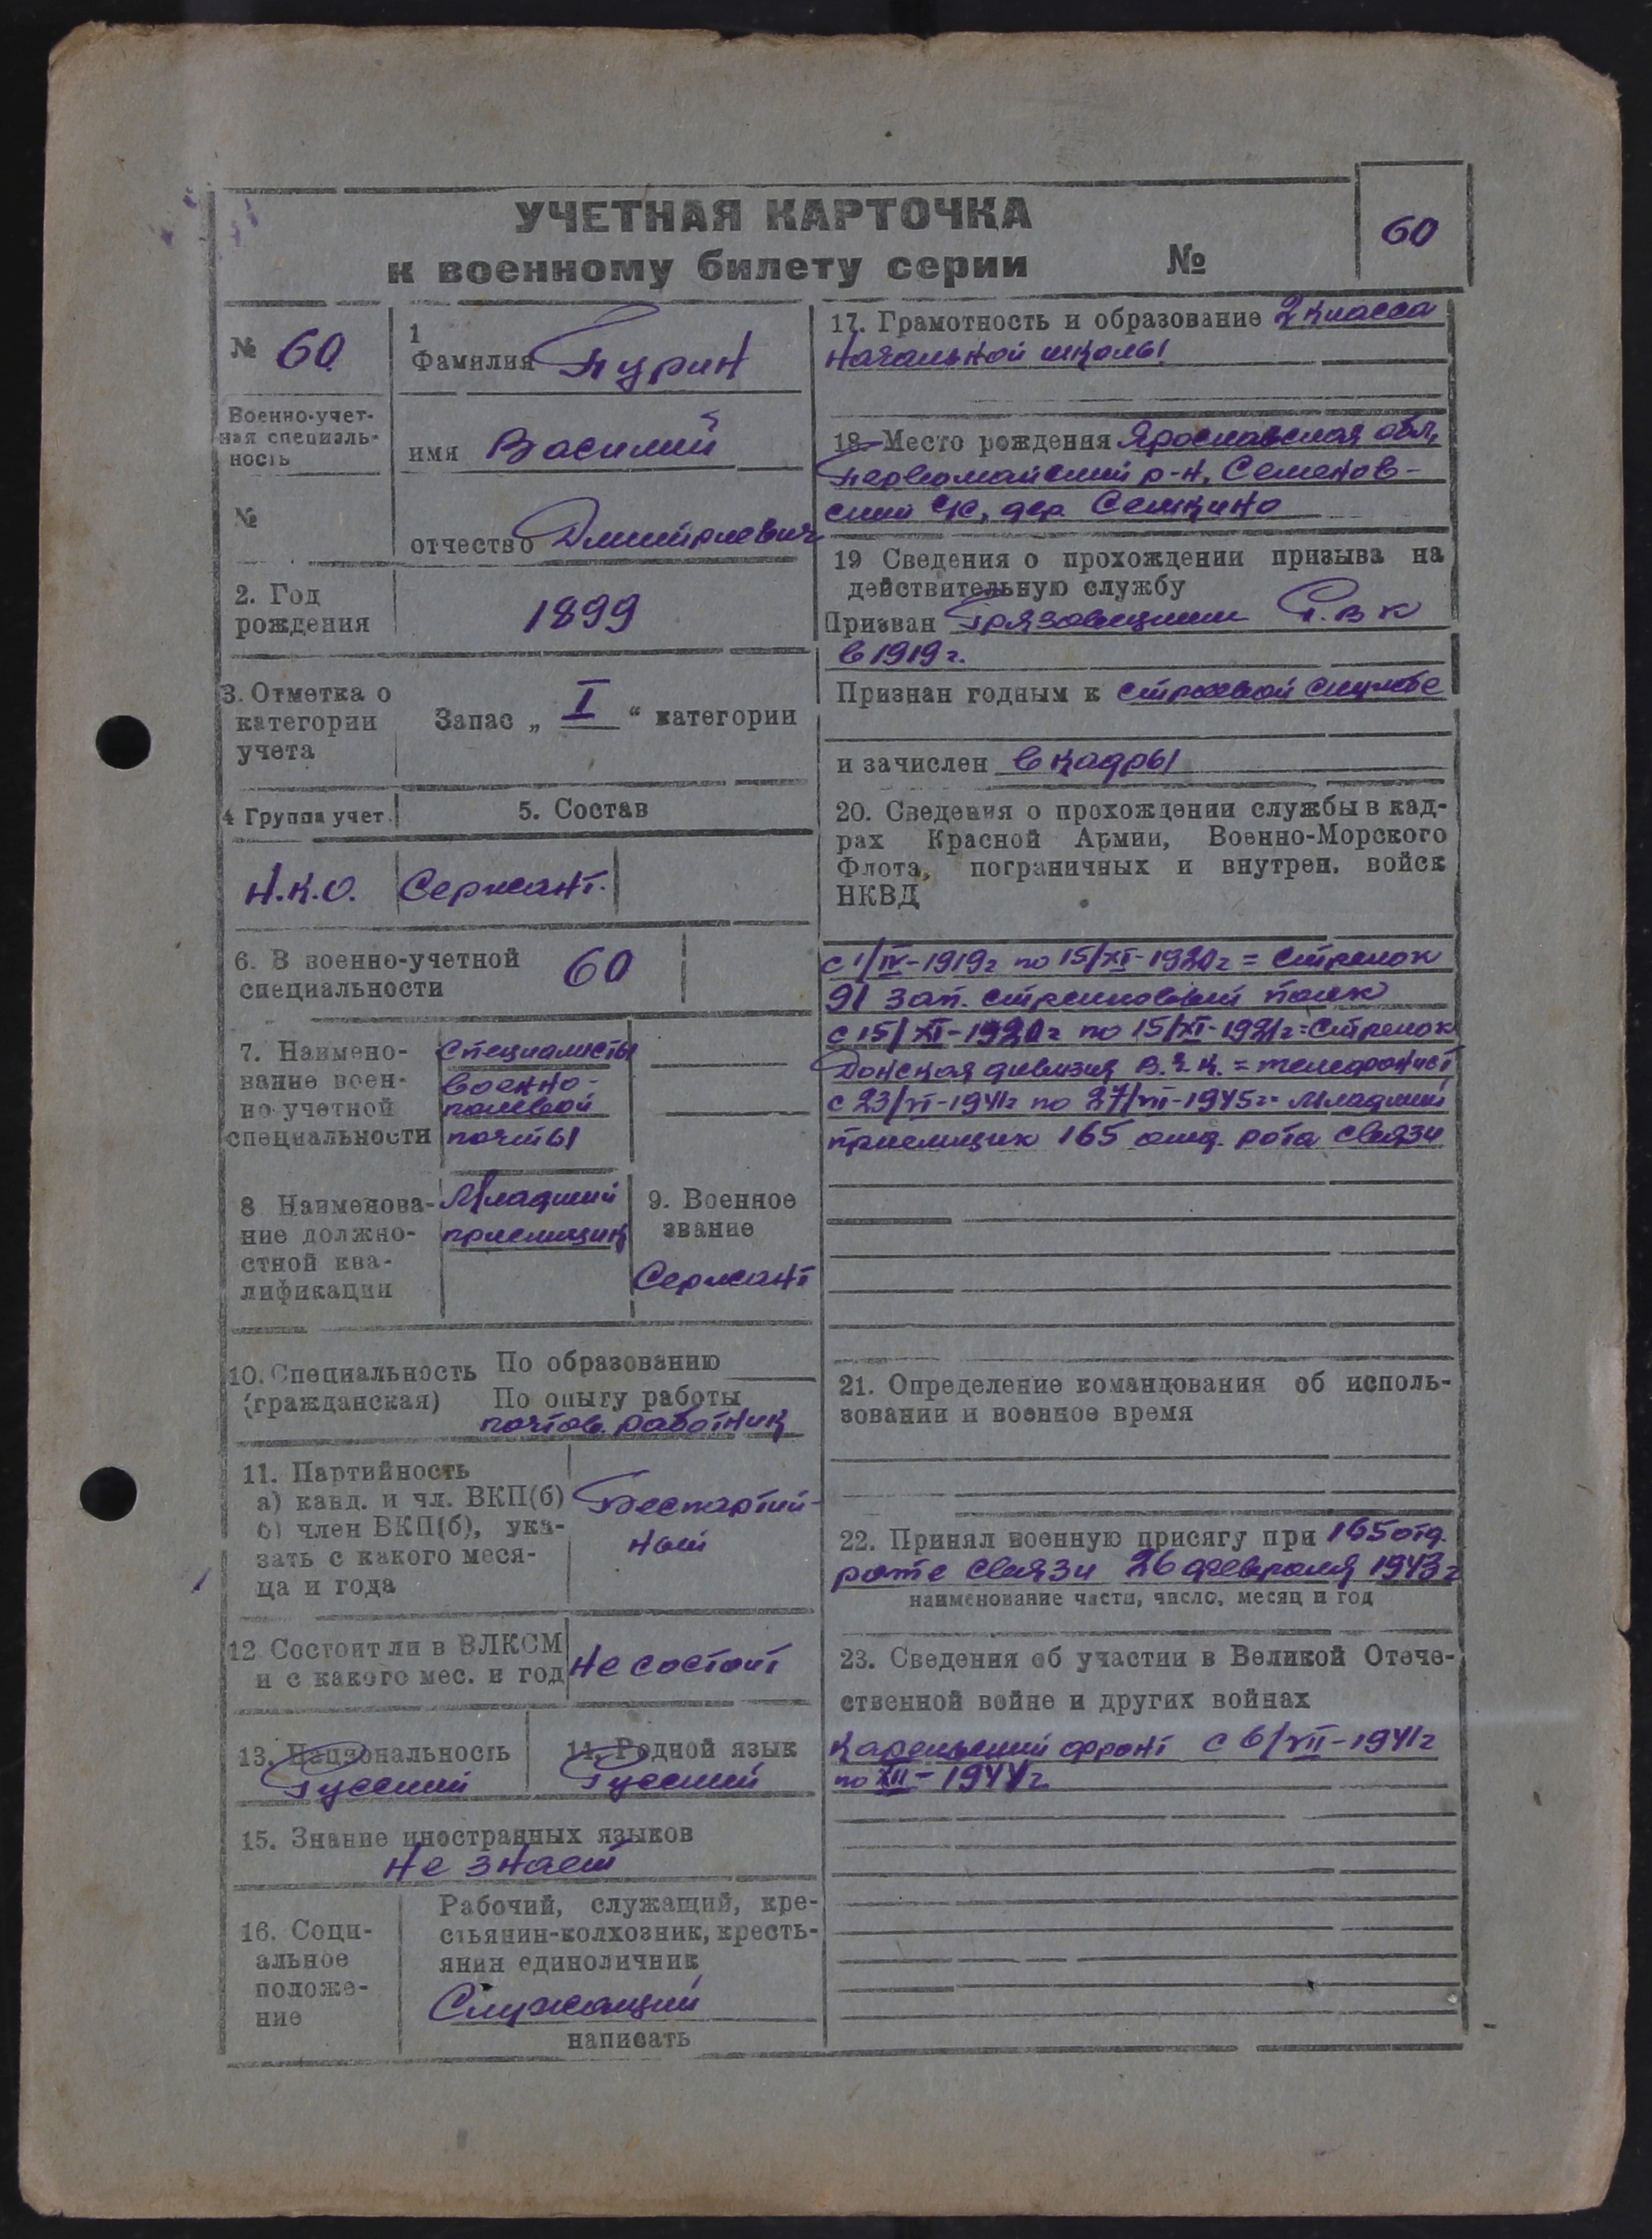 УЧЕТНАЯ КАРТОЧКА
к военному билету серии №
60
№ 60
Военно-учет-
ная специаль-
ность
№
1
Фамилия Пурин
имя Василий
отчество Дмитриевич
2. Год
рождения
1899
3. Отметка о
категории
учета
Запас „ I “ категории
4 Группа учет.
5. Состав
Н.К.О.
Сержант.
6. В военно-учетной
специальности
60
7. Наимено-
вание воен-
но-учетной
специальности
Специалисты
военно-
полевой
почты
8 Наименова-
ние должно-
стной ква-
лификации
Младший
приемщик
9. Военное
звание
Сержант
10. Специальность
(гражданская)
По образованию
По опыту работы
почтов. работник
11. Партийность
а) канд. и чл. ВКП(б)
б) член ВКП(б), ука-
зать с какого меся-
ца и года
Беспартий-
ный
12 Состоит ли в ВЛКСМ
и с какого мес. и год
Не состоит
13. Национальность
Русский
14. Родной язык
Русский
15. Знание иностранных языков
Не знает
16. Соци-
альное
положе-
ние
Рабочий, служащий, кре-
стьянин-колхозник, кресть-
янин единоличник
Служащий
написать
17. Грамотность и образование 2 класса
начальной школы
18. Место рождения Ярославская обл,
Первомайский р-н, Семенов-
ский с/с, дер. Семкино
19 Сведения о прохождении призыва на
действительную службу
Призван Грязовецким Р.В К
в 1919 г.
Признан годным к строевой службе
и зачислен в кадры
20. Сведения о прохождении службы в кад-
рах Красной Армии, Военно-Морского
Флота, пограничных и внутрен. войск
НКВД
с 1/IV-1919г по 15/XI-1920г = Стрелок
91 зап. стрелковый полк
с 15/XI-1920г по 15/XI-1921г = Стрелок
Донская дивизия В.Ч.К. = телефонист
с 23/VI-1941г по 27/VII-1945г = Младший
приемщик 165 отд. рота связи
21. Определение командования об исполь-
зовании и военное время
22. Принял военную присягу при 165 отд.
роте связи 26 февраля 1943 г
наименование части, число, месяц и год
23. Сведения об участии в Великой Отече-
ственной войне и других войнах
Карельский фронт с 6/VII-1941г
по XII-1944г